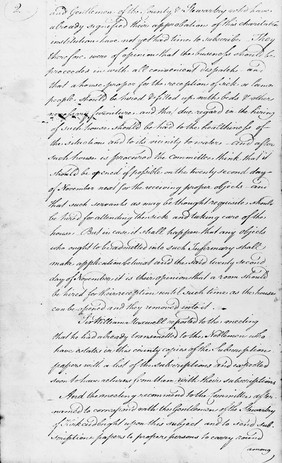 2.
and Gentlemen of the County & Stewartry who have
already signified their approbation of this charitable
institution have not yet had time to subscribe. They
therefore were of opinion that the business should be
proceeded in with all convenient dispatch and
that a house proper for the reception of sick or lame
people should be hired & fitted up with beds & other
necessary furniture and that due regard in the hiring
of such house should be had to the healthiness of
the situation and to its vicinity to water. And after
such house is procured the Committee think that it
should be opened if possible on the twenty second day
of November next for the receiving proper objects and
that such servants as may be thought requisite should
be hired for attending the sick and taking care of the
house. But in case it shall happen that any objects
who ought to be admitted into such Infirmary shall
make application betwixt and the said twenty second
day of November, it is their opinion that a room should
be hired for their reception until such time as the house
can be opened and they removed into it.
Sir William Maxwell reported to the meeting
that he had already transmitted to the Noblemen who
have estates in this county copies of the Subscription
papers with a list of the subscriptions and expected
soon to have returns from them with their subscriptions
And the meeting recommend to the Committee after-
to correspond with the Gentlemen of the Stewartry
of Kirkcudbright upon this subject and to send sub-
scription papers to proper persons to carry round
among